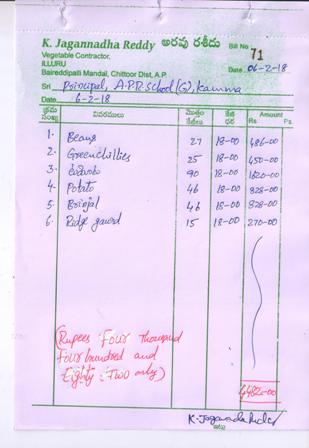 K. Jagannadha Reddy అరవు రశీదు Bill No 71
Vegetable Contractor,
ILLURU
Baireddipalli Mandal, Chittoor Dist, A.P. Date 06-2-18
Sri Principal, A.P.R. School (G), Kamma
Date 6-2-18
క్రమ సంఖ్య వివరములు మొత్తం కేజీలు కేజీ ధర Amount Rs Ps
1. Beans 27 18-00 486-00
2. Greenchillies 25 18-00 450-00
3. 90 18-00 1620-00
4. Potato 46 18-00 828-00
5. Brinjal 46 18-00 828-00
6. Ridge gaurd 15 18-00 270-00
(Rupees Four Thousand
Four hundred and
Eighty Two only)
4482-00
K. Jagannadha Reddy